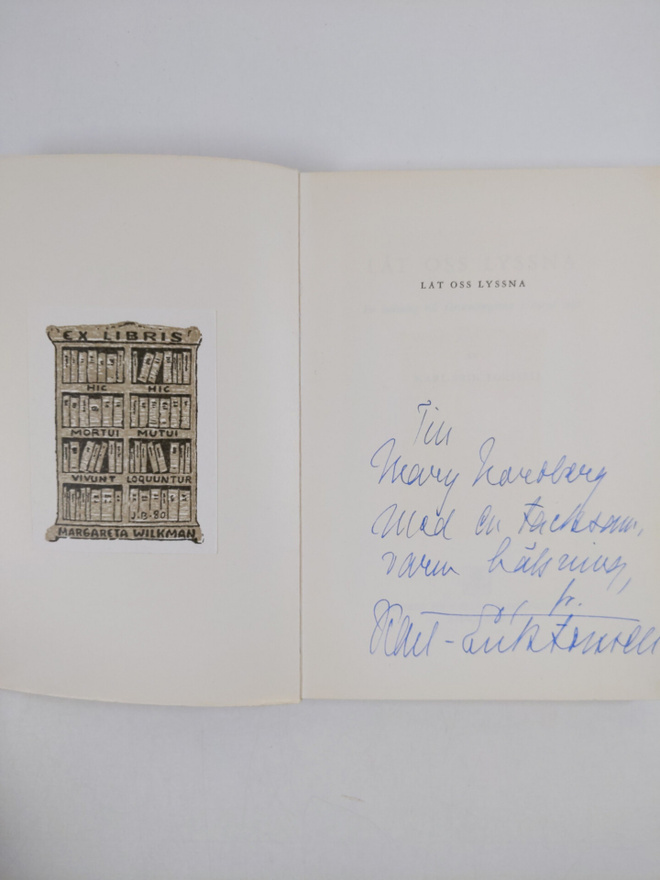 EX LIBRIS
HIC HIC
MORTUI MUTUI
VIVUNT LOQUUNTUR
J.B. 80
MARGARETA WILKMAN
LÅT OSS LYSSNA
LÅT OSS LYSSNA
Till
Mary
Med en tacksam,
varm hälsning,
fr.
Karl-Erik Forssell